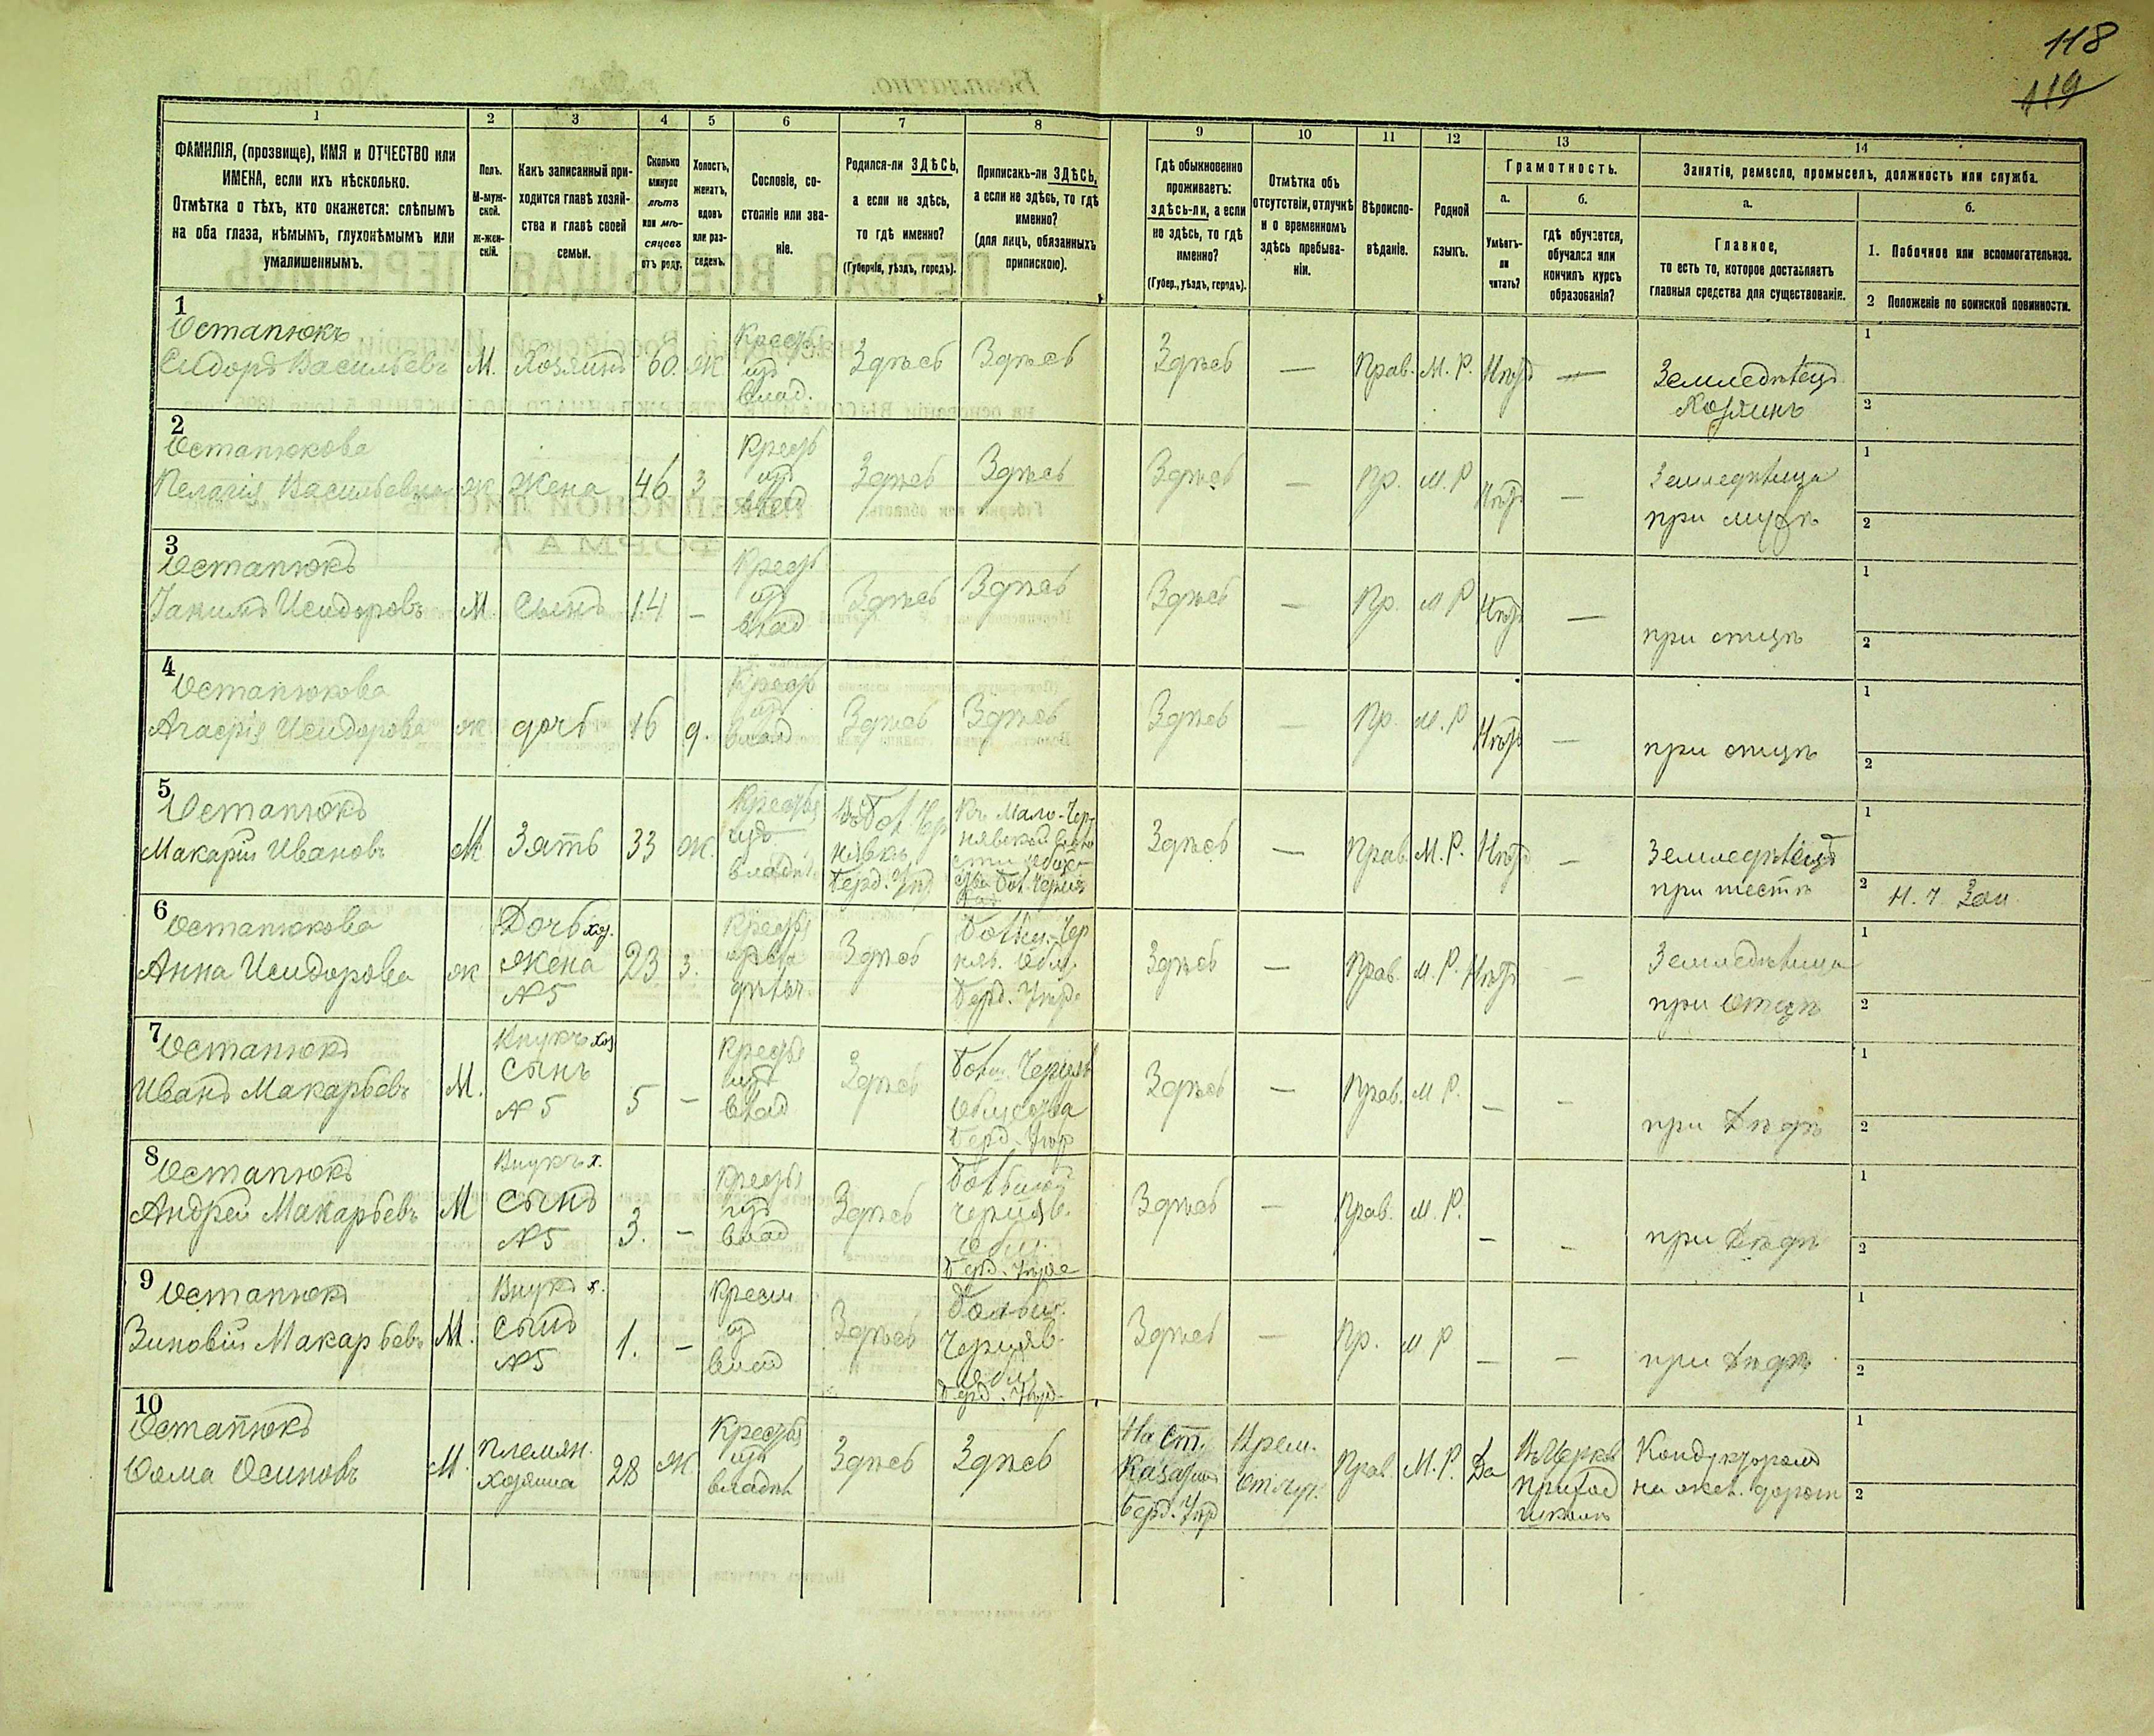 118
119
1 2 3 4 5 6 7 8 9 10 11 12 13 14
ФАМИЛІЯ, (прозвище), ИМЯ и ОТЧЕСТВО или
ИМЕНА, если ихъ нѣсколько.
Отмѣтка о тѣхъ, кто окажется: слѣпымъ
на оба глаза, нѣмымъ, глухонѣмымъ или
умалишеннымъ.
Полъ.
М-муж-
ской.
Ж-жен-
скій.
Какъ записанный при-
ходится главѣ хозяй-
ства и главѣ своей
семьи.
Сколько
минуло
лѣтъ
или мѣ-
сяцевъ
отъ роду.
Холостъ,
женатъ,
вдовъ
или раз-
веденъ.
Сословіе, со-
стояніе или зва-
ніе.
Родился-ли ЗДѢСЬ,
а если не здѣсь,
то гдѣ именно?
(Губернія, уѣздъ, городъ).
Приписанъ-ли ЗДѢСЬ,
а если не здѣсь, то гдѣ
именно?
(для лицъ, обязанныхъ
припискою).
Гдѣ обыкновенно
проживаетъ:
здѣсь-ли, а если
не здѣсь, то гдѣ
именно?
(Губер., уѣздъ, городъ).
Отмѣтка объ
отсутствіи, отлучкѣ
и о временномъ
здѣсь пребыва-
ніи.
Вѣроиспо-
вѣданіе.
Родной
языкъ.
Грамотность.
а.
Умѣетъ-
ли
читать?
б.
гдѣ обучается,
обучался или
кончилъ курсъ
образованія?
Занятіе, ремесло, промыселъ, должность или служба.
а.
Главное,
то есть то, которое доставляетъ
главныя средства для существованія.
б.
1. Побочное или вспомогательное.
2 Положеніе по воинской повинности.
1
Остапюкъ
Сидоръ Васильевъ М. Хозяинъ 60. Ж
Крестья
изъ
влад.
Здѣсь Здѣсь Здѣсь — Прав. М. Р. Нѣтъ —
Земледѣлецъ
Хозяинъ
1
2
2
Остапюкова
Пелагія Васильевна Ж Жена 46 З
Крест
изъ
влад
Здѣсь Здѣсь Здѣсь — Пр. М. Р Нѣтъ —
Земледѣлица
при мужѣ
1
2
3
Остапюкъ
Іакимъ Исидоровъ М Сынъ 14 -
Крест
изъ
влад
Здѣсь Здѣсь Здѣсь — Пр. М Р Нѣтъ —
при отцѣ
1
2
4
Остапюкова
Агафія Исидорова Ж дочь 16 д.
Крест
изъ
влад
Здѣсь Здѣсь Здѣсь — Пр. М. Р Нѣтъ —
при отцѣ
1
2
5
Остапюкъ
Макарій Ивановъ М Зять 33 Ж.
Крестья
изъ
владѣ
Бол Чер
нявкѣ
Берд. Уѣз
Къ Мало-Чер-
нявской воло
сти общес-
тва Бол. Черняв
Здѣсь — Прав. М. Р. Нѣтъ —
Земледѣлецъ
при тестѣ
1
2
Н. Ч. Зап
6
Остапюкова
Анна Исидорова Ж
Дочь хоз.
жена
№5
23 З.
Крестья
Здѣсь
Больш.-Чер
няв. Общ.
Берд. Уѣзд.
Здѣсь — Прав. М. Р. Нѣтъ —
Земледѣлица
при Отцѣ
1
2
7
Остапюкъ
Иванъ Макарьевъ М.
Внукъ хоз
Сынъ
№5
5 -
Крестья
изъ
влад
Здѣсь
Больш. Черняв
Общества
Берд. Уѣзд
Здѣсь — Прав. М Р. - -
при Дѣдѣ
1
2
8
Остапюкъ
Андрей Макарьевъ М
Внукъ х.
Сынъ
№5
3. -
Крестья
изъ
влад
Здѣсь
Большой
Черняв.
Общ.
Берд. Уѣзда
Здѣсь — Прав. М. Р. - -
при Дѣдѣ
1
2
9
Остапюкъ
Зиновій Макарьевъ М.
Внукъ х.
Сынъ
№5
1. -
Крест
из
влад
Здѣсь
Больш.
Черняв.
общ
Берд. Уѣзд.
Здѣсь — Пр. М Р - -
при Дѣдѣ
1
2
10
Остапюкъ
Ѳома Осиповъ М.
племян.
хозяина
28 Ж.
Крестья
изъ
владѣ
Здѣсь Здѣсь
На Ст.
Казатин
Берд. Уѣзд
Врем.
отлуч.
Прав. М. Р. Да
Въ Церков
приход
школѣ
Кондукторомъ
на жел. дорогѣ
1
2